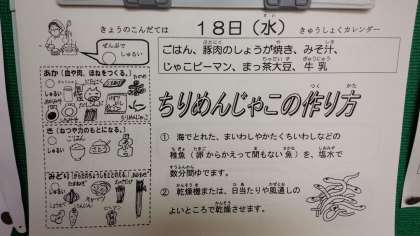 きょうのこんだては
18日（水）
きゅうしょくカレンダー
ぜんぶで
しゅるい
ごはん、豚肉のしょうが焼き、みそ汁、
じゃこピーマン、まっ茶大豆、牛乳
あか（血や肉、ほねをつくる。）
しゅるい
ちりめんじゃこの作り方
き（ねつや力のもとになる。）
しゅるい
① 海でとれた、まいわしやかたくちいわしなどの
稚魚（卵からかえって間もない魚）を、塩水で
数分間ゆでます。
② 乾燥機または、日当たりや風通しの
よいところで乾燥させます。
しゅるい